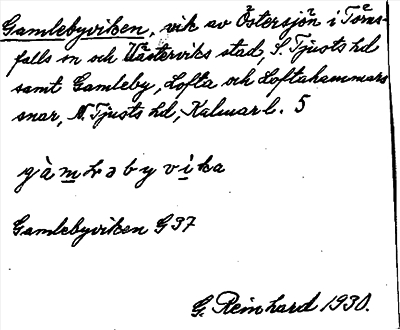 Gamlebyviken, vik av Östersjön i Törns-
falls sn och Västerviks stad, S. Tjusts hd
samt Gamleby, Lofta och Loftahammars
snar, N. Tjusts hd, Kalmar l. 5
gàmləbyvika
Gamlebyviken G37
G. Reinhard 1930.